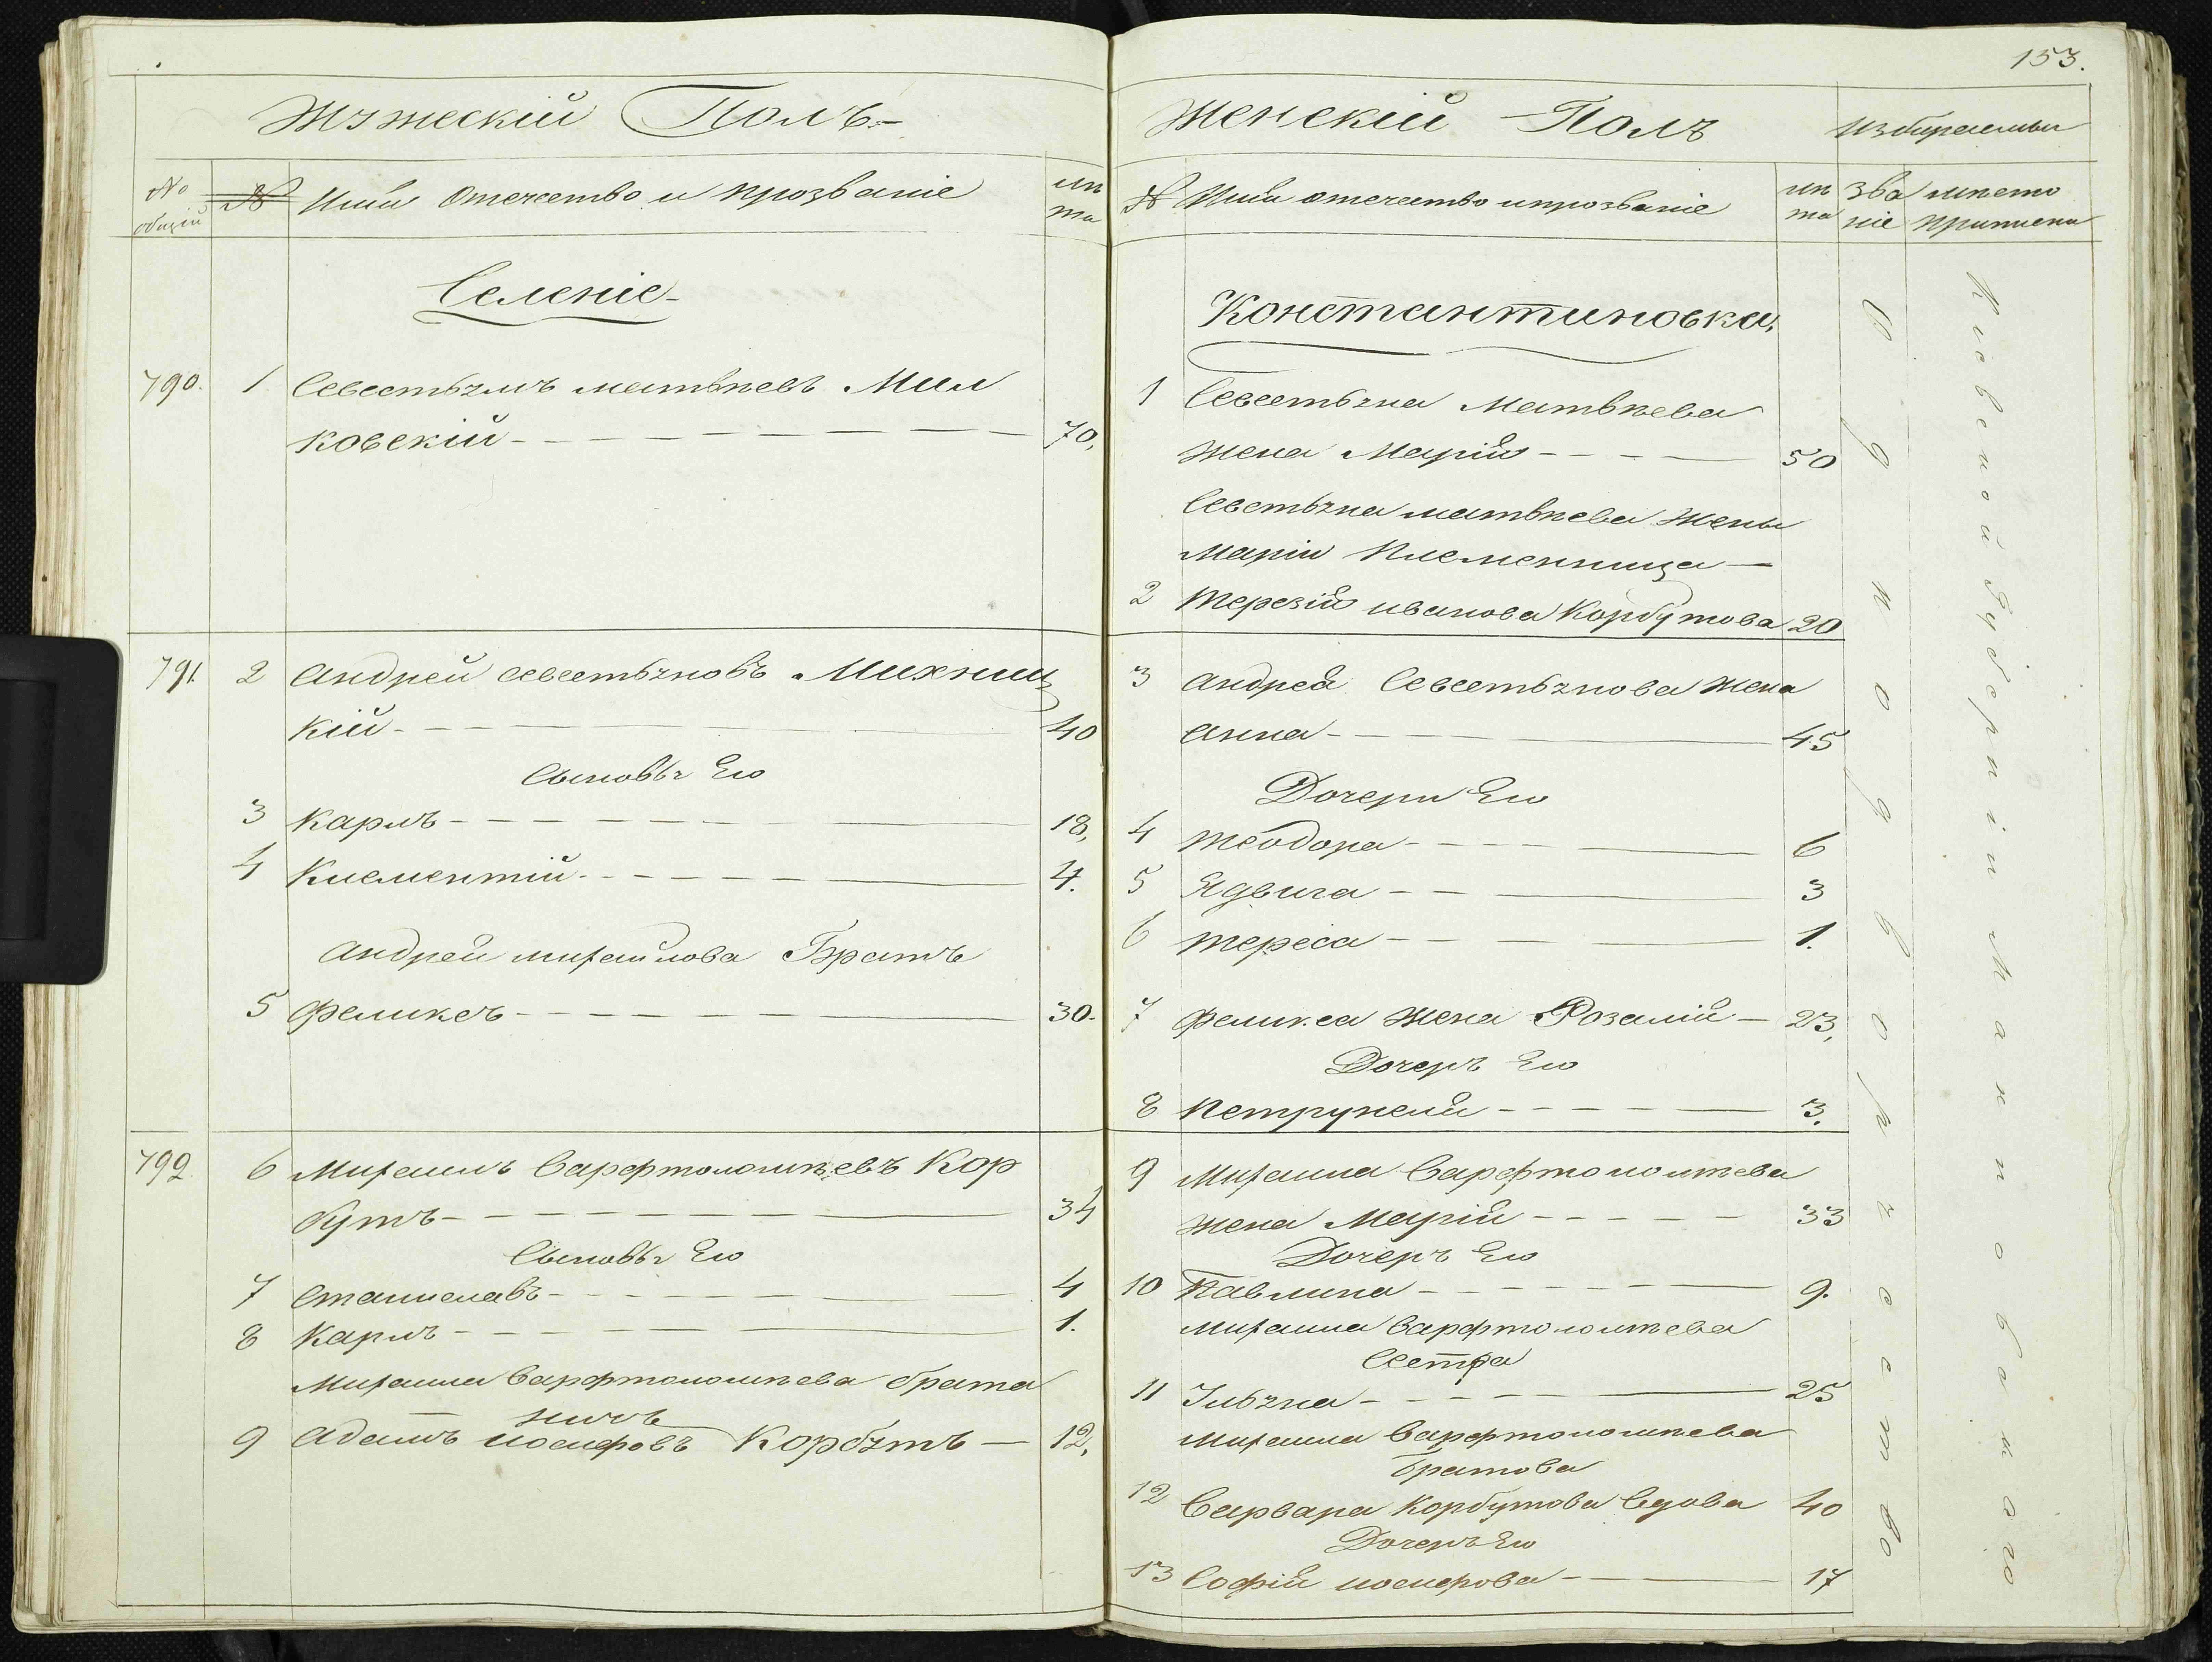 153.
Мужескій Полъ
№ общій
№
Имя Отечество и прозваніе
лѣта
Селеніе
790. 1 Севестьянъ матвѣевъ Мил
ковскій 70,
791. 2 Андрей севестьяновъ Михниц
кій 40
Сыновья Его
3 Карлъ 18,
4 Клементій 4.
Андрея михайлова Братъ
5 Феликсъ 30.
792 6 Михаилъ Варфтоломѣевъ Кор
бутъ 34
Сыновья Его
7 Станиславъ 4
8 Карлъ 1.
Михаила Варфтоломѣева брата
сынъ
9 Адамъ иосифовъ Корбутъ 12,
Женскій Полъ
Избиратели
№ Имя отечество и прозваніе
лѣта
званіе
мѣсто приписки
Константиновка,
1 Севестьяна Матвѣева
жена Марія 50
Севестьяна матвѣева жены
Маріи Племенница
2 Терезія иванова Корбутова 20
3 Андрея Севестьянова жена
Анна 45
Дочери Его
4 Теодора 6
5 Ядвига 3
6 Тереса 1.
7 Феликса жена Розалія 23,
Дочерь Его
8 Петрунеля 3.
9 Михаила Варфтоломѣева
жена Марія 33
Дочерь Его
10 Павлина 9.
Михаила Варфтоломѣева
Сестра
11 Ульяна 25
Михаила Варфтоломѣева
Братова
12 Варвара Корбутова вдова 40
Дочерь Ею
13 Софія иосифова 17
Однодворческаго
Кіевской Губерніи